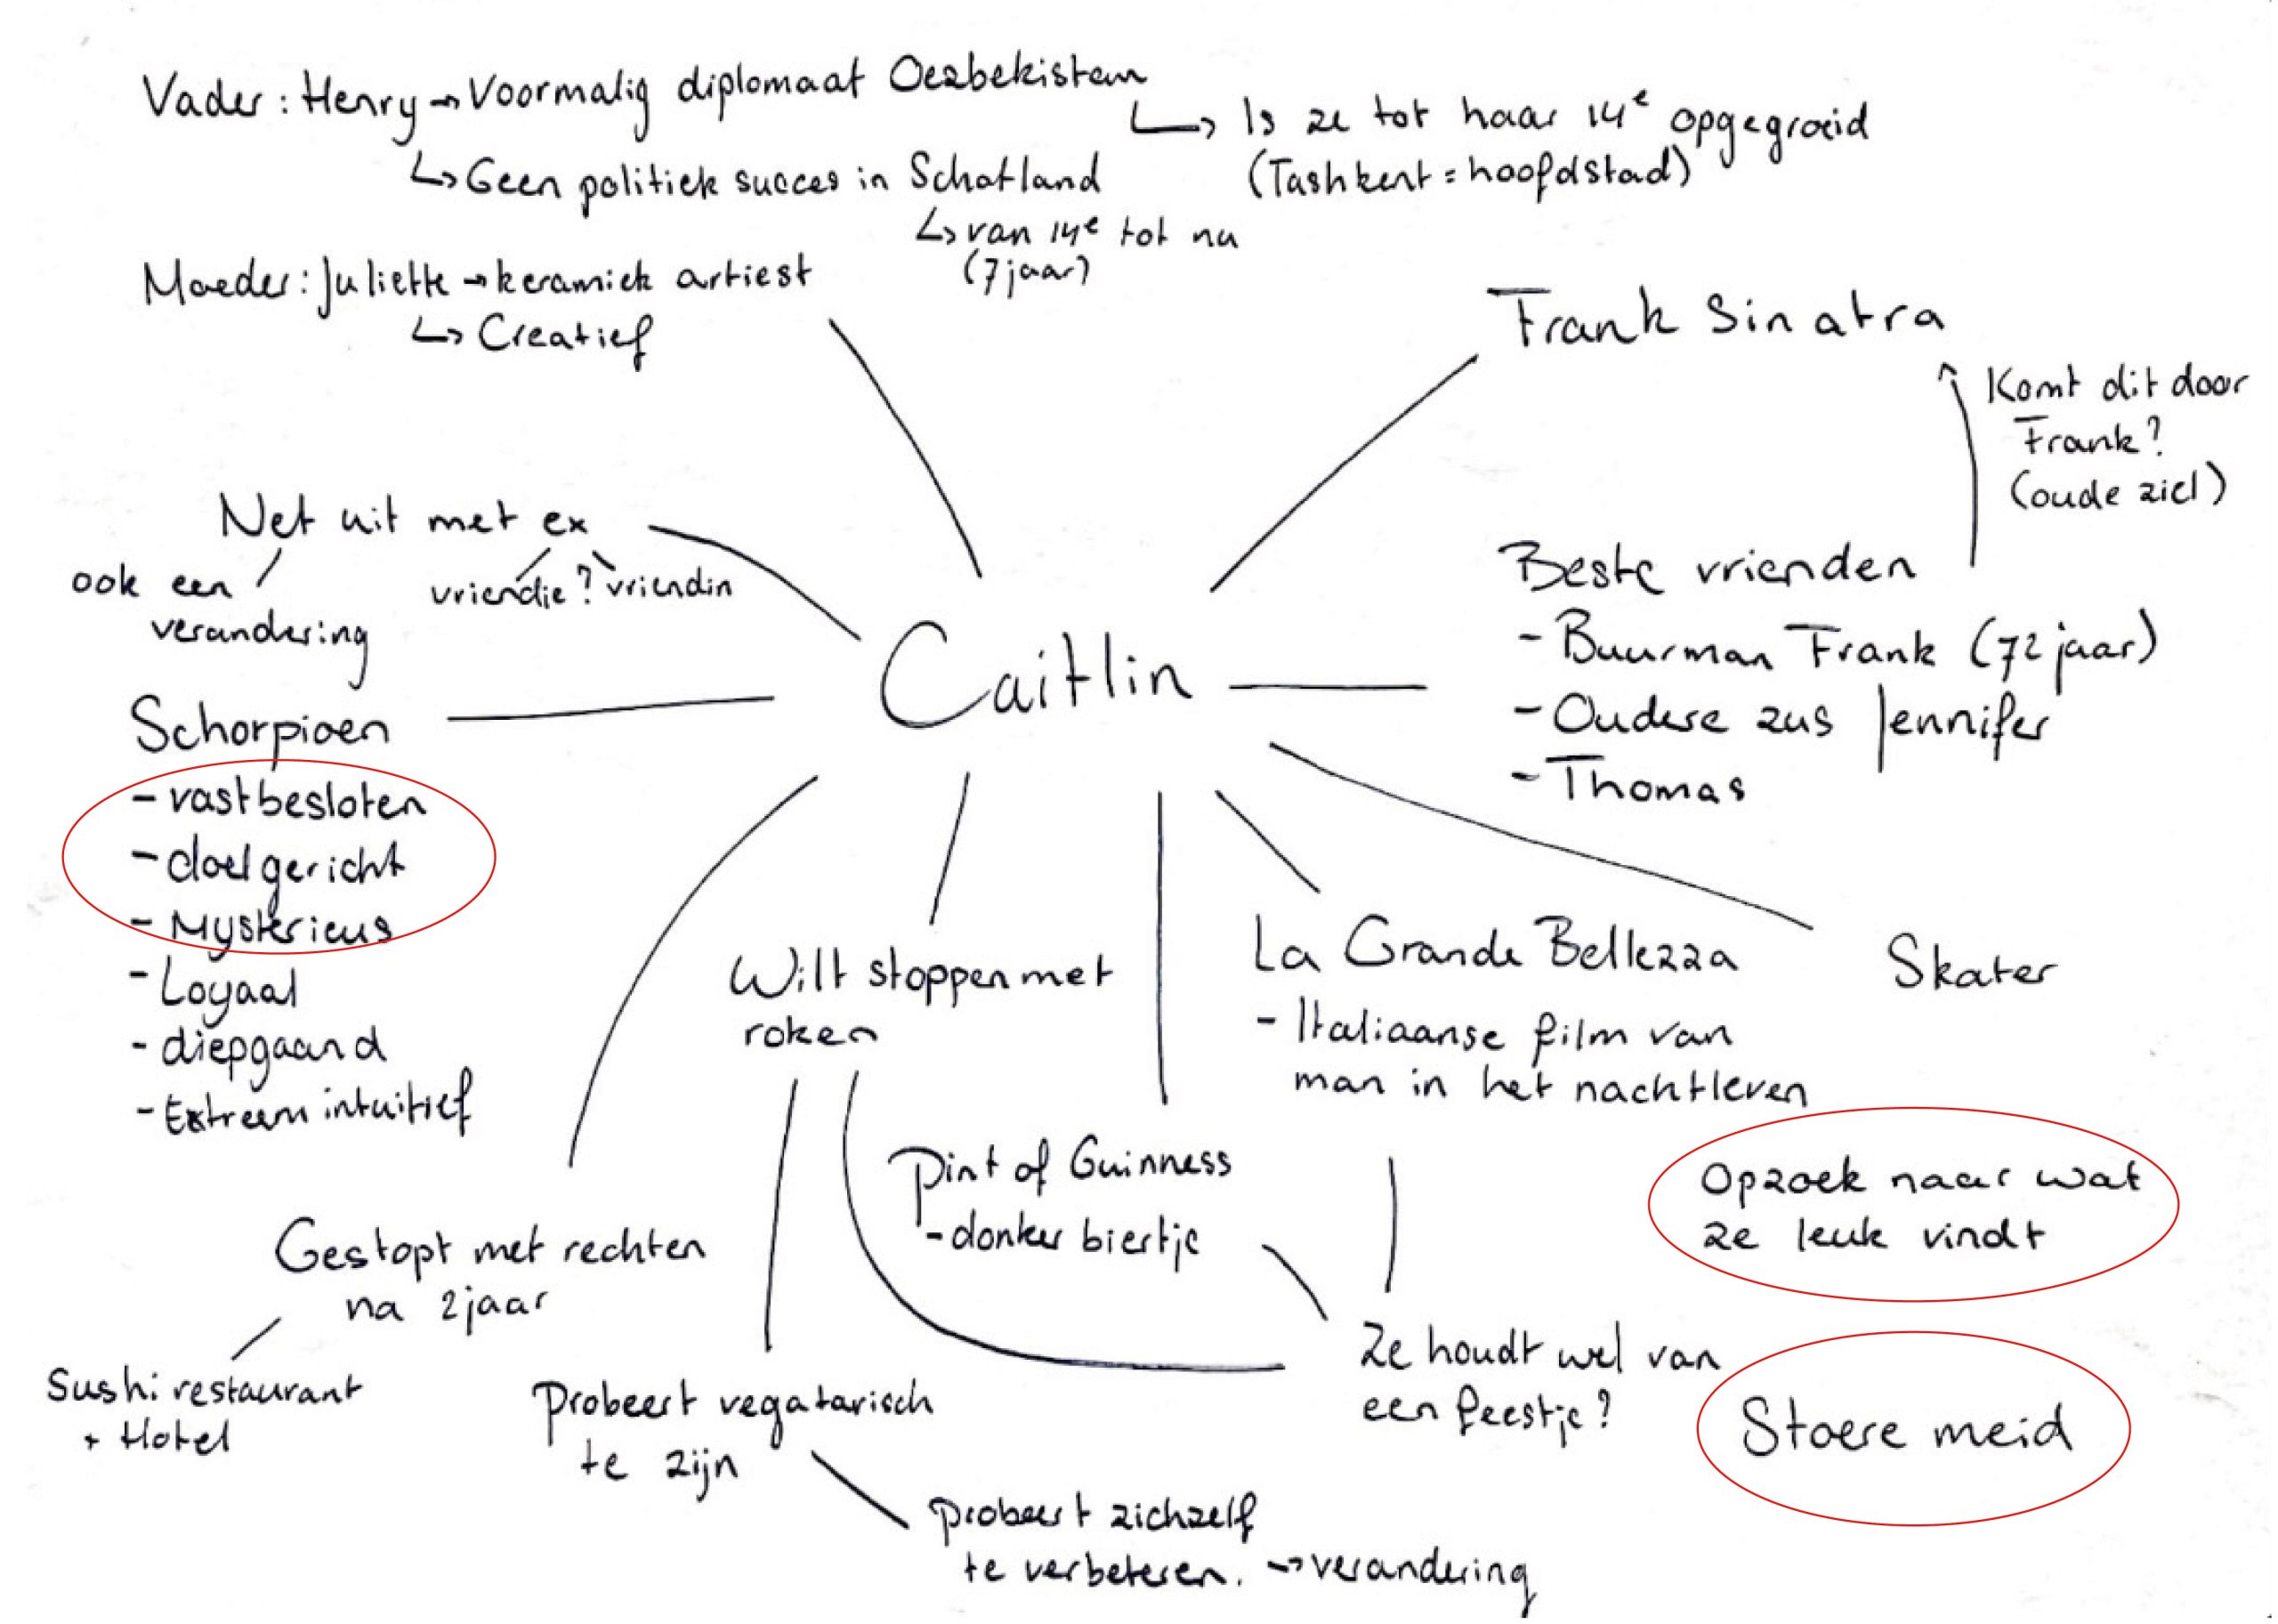 Vader: Henry → Voormalig diplomaat Oezbekistan
↳ Is ze tot haar 14e opgegroeid
(Tashkent = hoofdstad)
↳ Geen politiek succes in Schotland
↳ van 14e tot nu
(7 jaar)
Moeder: Juliette → keramiek artiest
↳ Creatief
Frank Sinatra
Komt dit door
Frank?
(oude ziel)
Net uit met ex
ook een
verandering
vriendje? vriendin
Caitlin
Beste vrienden
- Buurman Frank (72 jaar)
- Oudere zus Jennifer
- Thomas
Schorpioen
- vastbesloten
- doelgericht
- Mysterieus
- Loyaal
- diepgaand
- Extreem intuitief
Wilt stoppen met
roken
La Grande Bellezza
- Italiaanse film van
man in het nachtleven
Skater
Pint of Guinness
- donker biertje
Opzoek naar wat
ze leuk vindt
Gestopt met rechten
na 2 jaar
Sushi restaurant
+ Hotel
Probeert vegatarisch
te zijn
Ze houdt wel van
een feestje?
Stoere meid
Probeert zichzelf
te verbeteren. → verandering